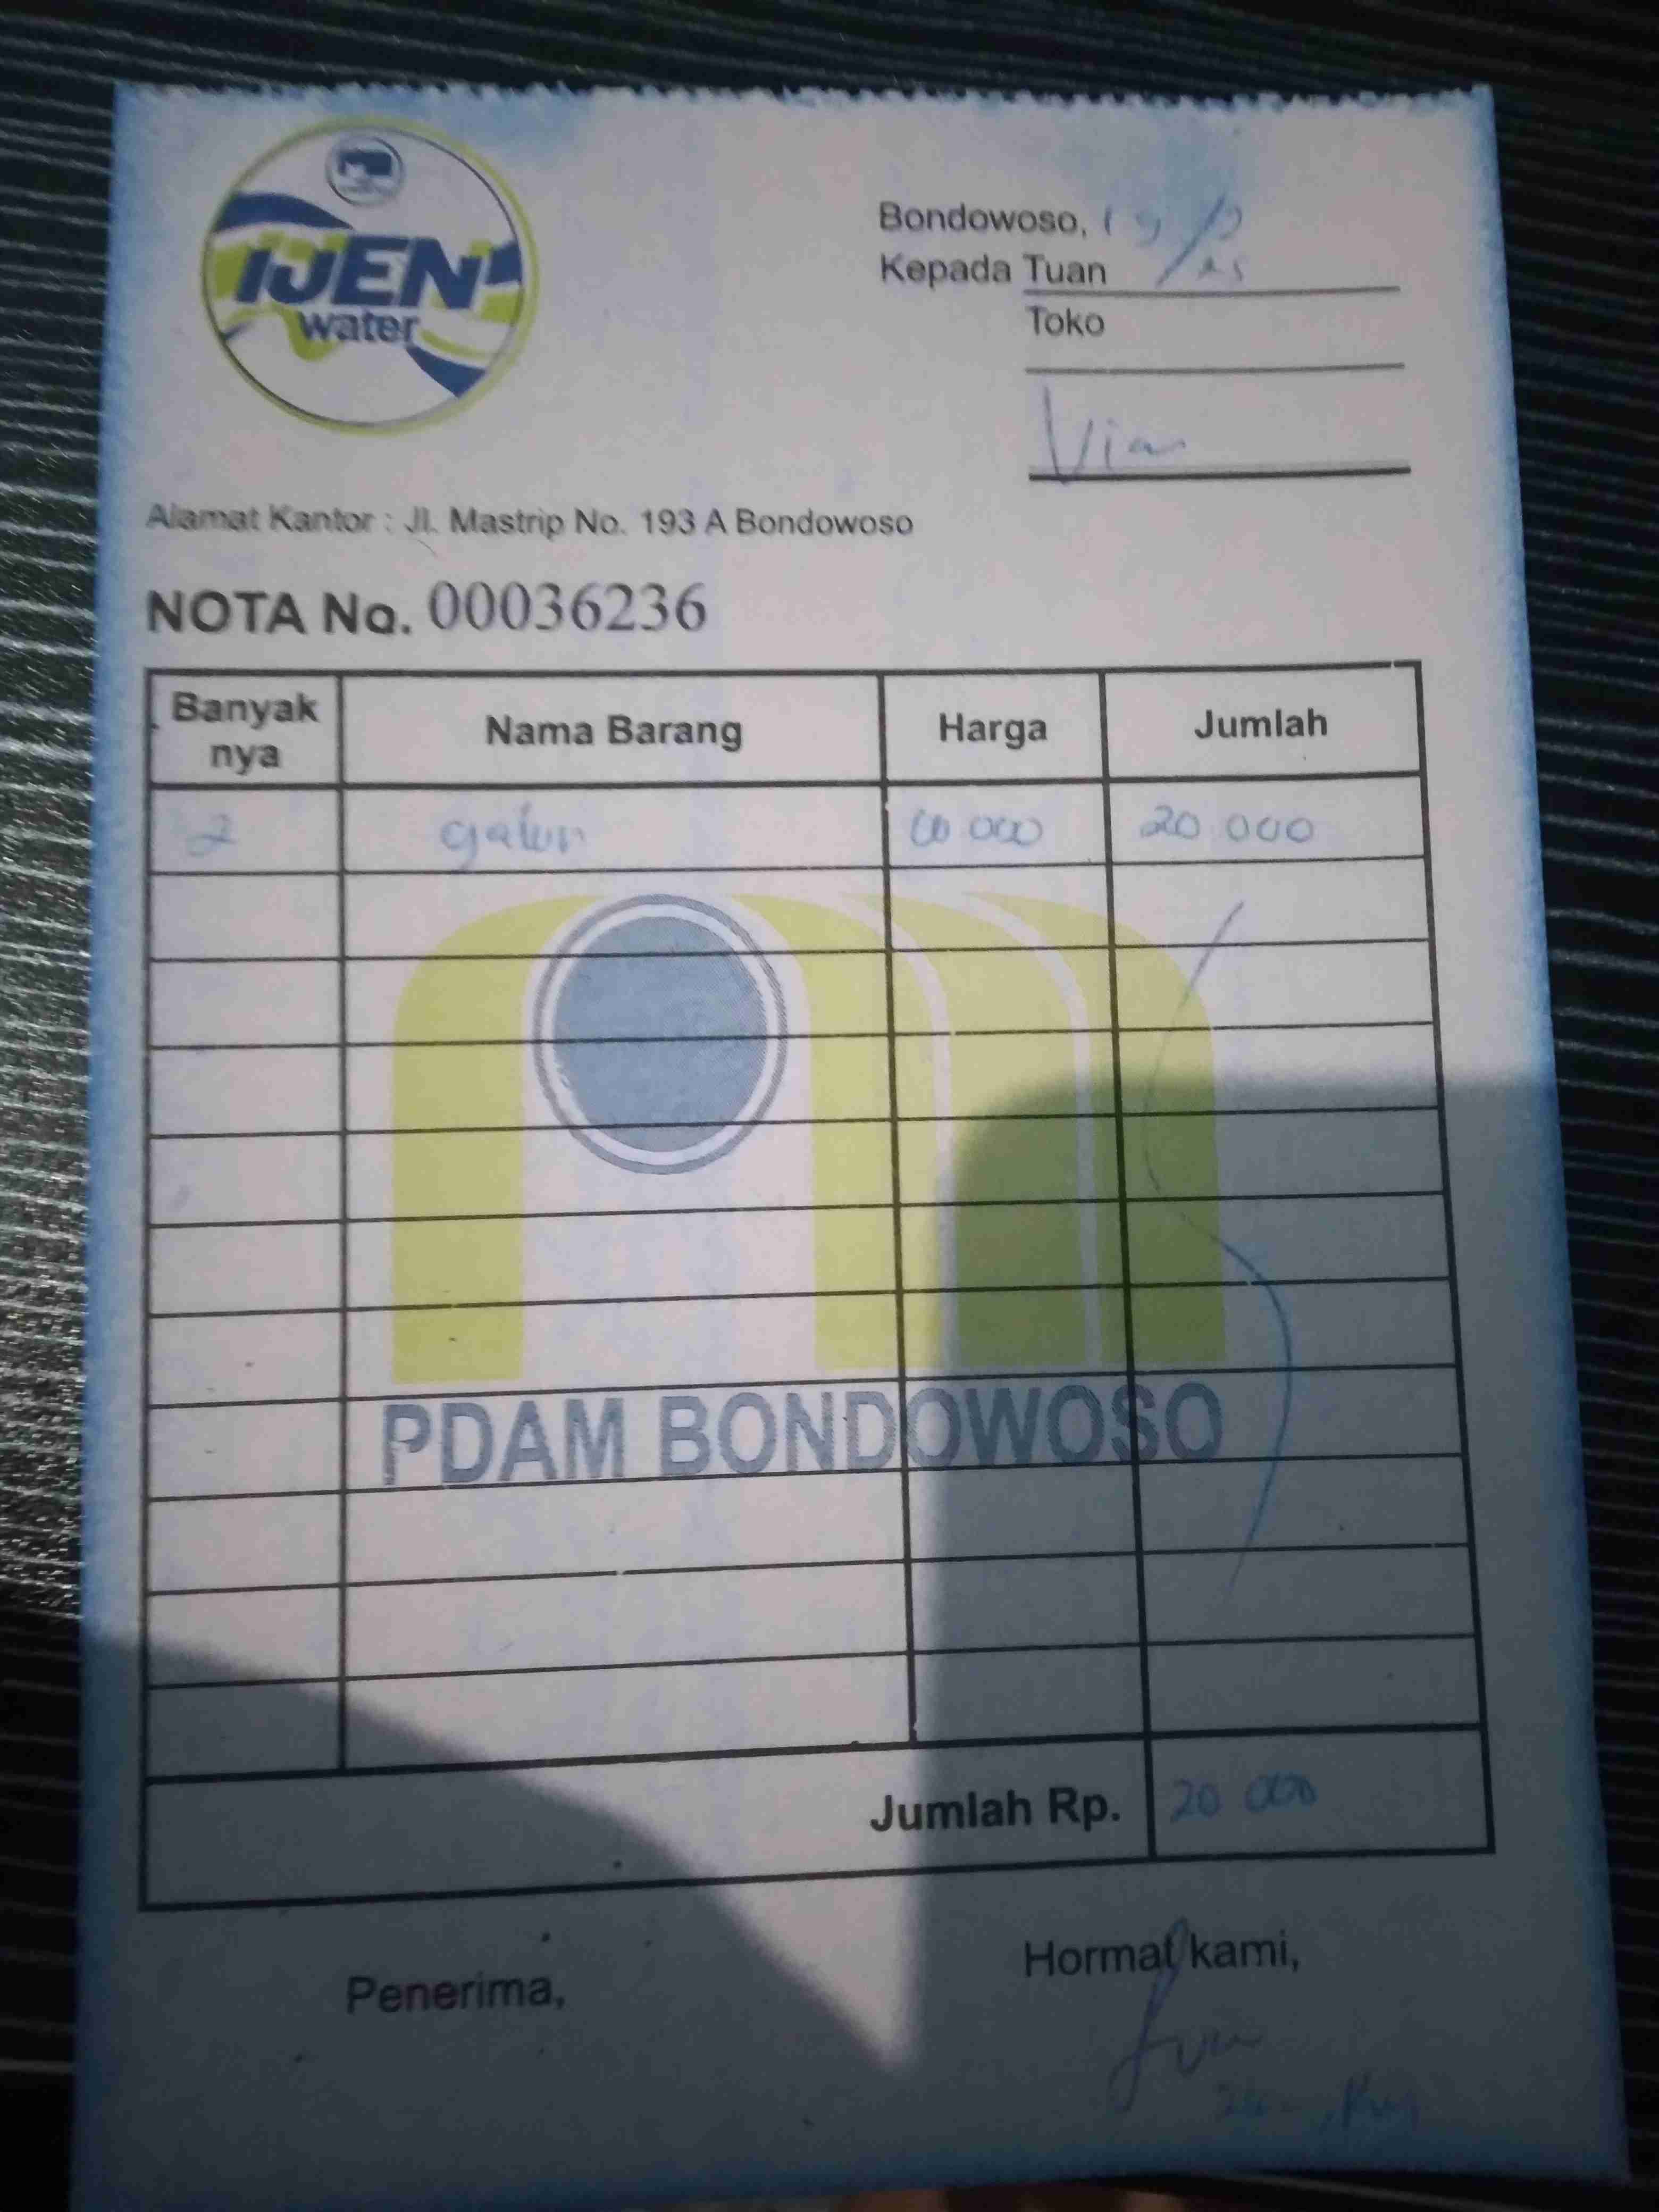 IJEN
water
Bondowoso, 19/
Kepada Tuan
Toko
Vian
Alamat Kantor : Jl. Mastrip No. 193 A Bondowoso
NOTA No. 00036236
Banyak nya Nama Barang Harga Jumlah
2 galon 10 000 20 000
PDAM BONDOWOSO
Jumlah Rp. 20 000
Penerima,
Hormat kami,